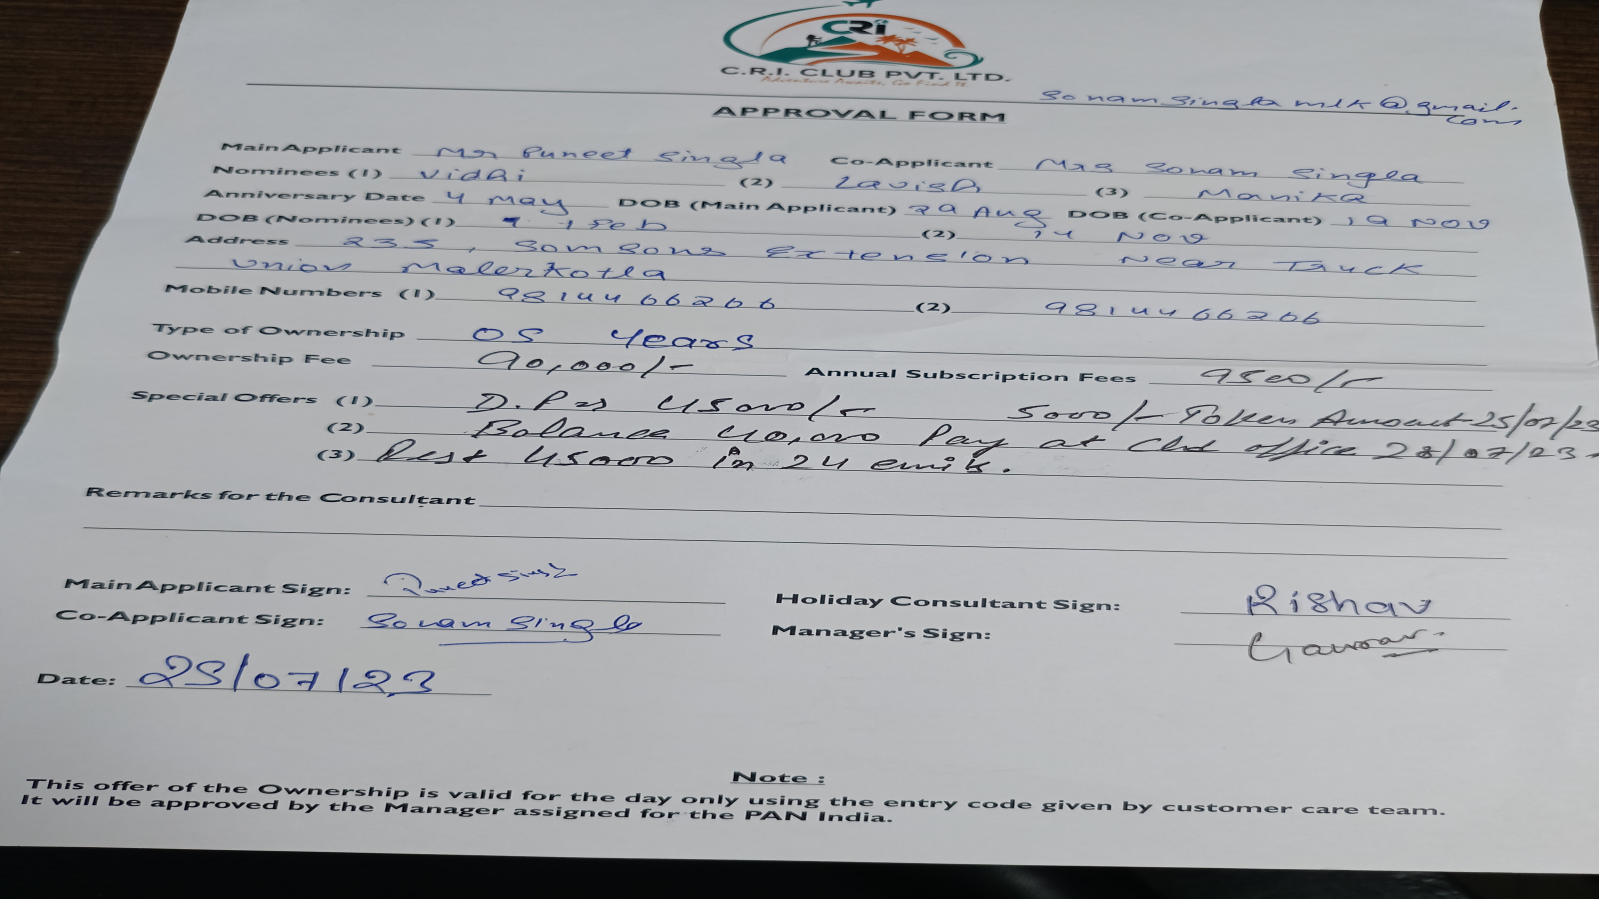 CRi
C.R.I. CLUB PVT. LTD.
Adventure Awaits, Go Find It.
sonamsinglamlk@gmail.com
APPROVAL FORM
Main Applicant Mr Puneet Singla Co-Applicant Mrs Sonam Singla
Nominees (1) Vidhi (2) Lavish (3) Manika
Anniversary Date 4 May DOB (Main Applicant) 29 Aug DOB (Co-Applicant) 19 Nov
DOB (Nominees) (1) Feb (2) 14 Nov
Address 235, Somsons Extension Near Truck
Union Malerkotla
Mobile Numbers (1) 9814466266 (2) 9814466266
Type of Ownership 05 Years
Ownership Fee 90,000/- Annual Subscription Fees 9500/-
Special Offers (1) D.P as 45000/- 5000/- Token Amount 25/07/23
(2) Balance 40,000 Pay at office 28/07/23.
(3) Rest 45000 in 24 emis.
Remarks for the Consultant
Main Applicant Sign: Puneet Singla
Holiday Consultant Sign: Rishav
Co-Applicant Sign: Sonam Singla
Manager's Sign: Gaurav
Date: 25/07/23
Note :
This offer of the Ownership is valid for the day only using the entry code given by customer care team.
It will be approved by the Manager assigned for the PAN India.